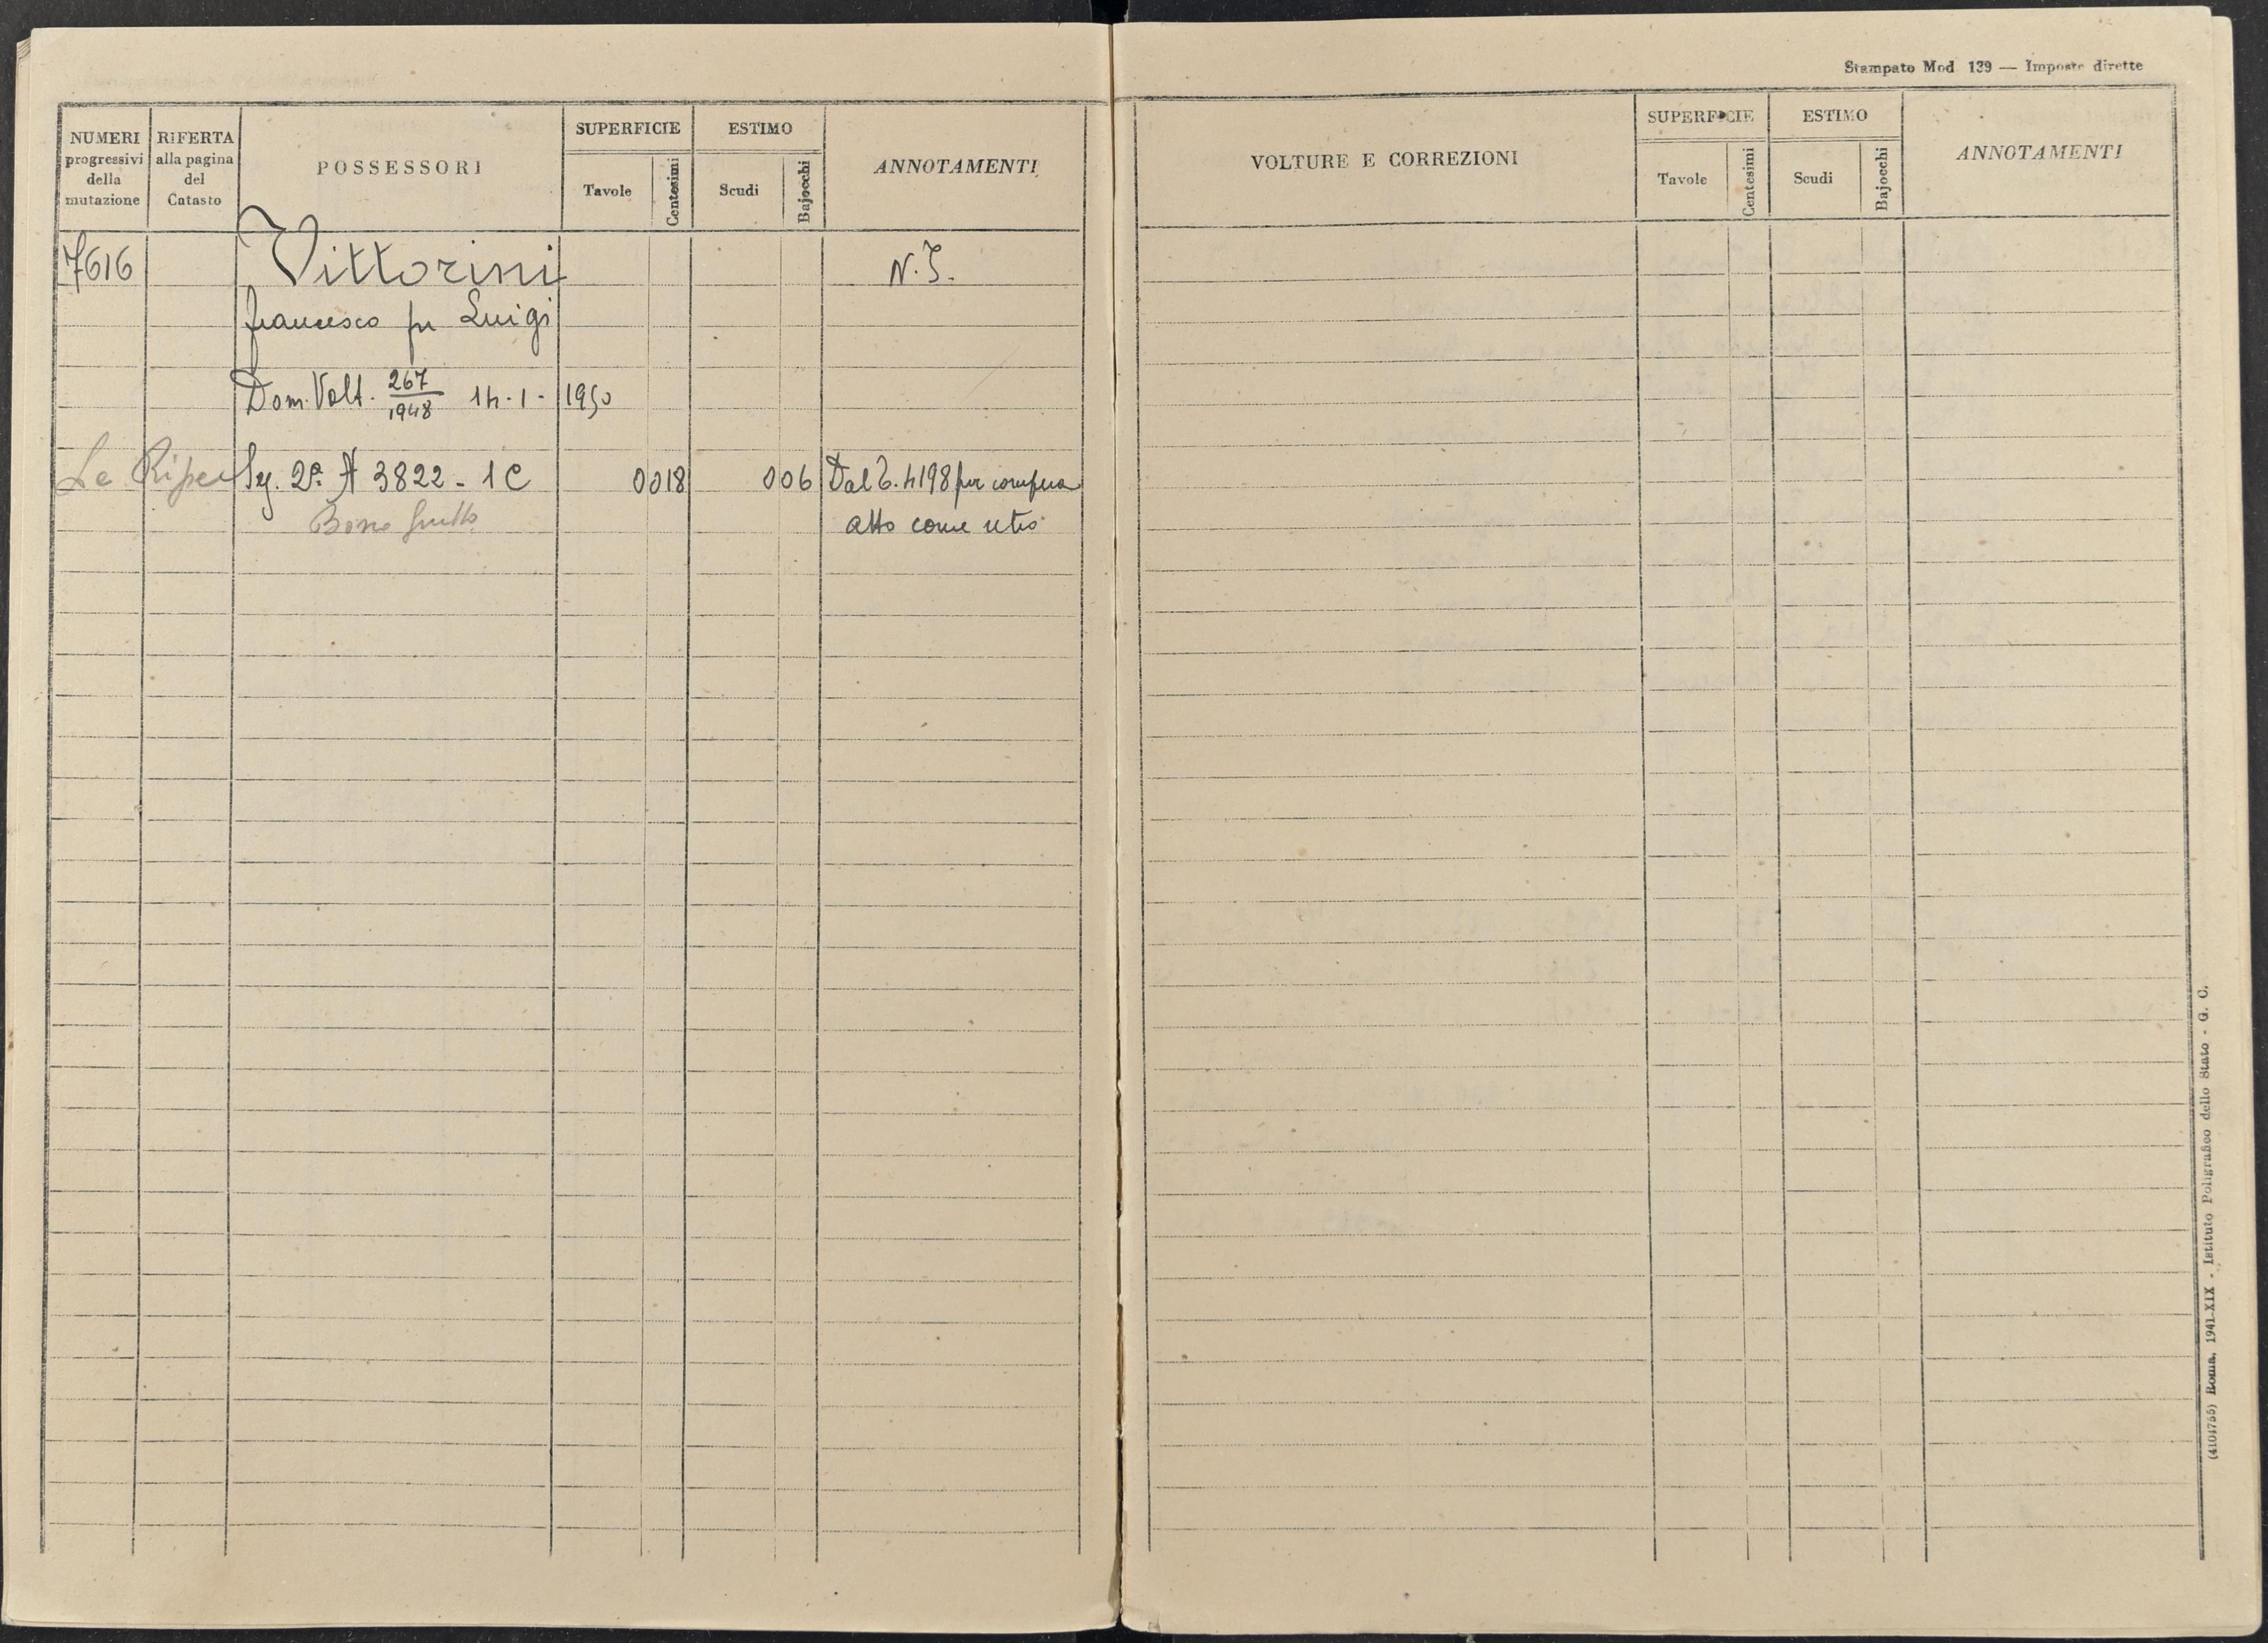 NUMERI
progressivi
della
mutazione
RIFERTA
alla pagina
del
Catasto
POSSESSORI
SUPERFICIE
Tavole
Centesimi
ESTIMO
Scudi
Bajocchi
ANNOTAMENTI
7616
Vittorini
N.I.
francesco fu Luigi
Dom. Volt. 267/1948 14-1-1950
Le Ripe Sez. 2ª A 3822-1C 0018 006 Dal T. 4198 per compra
Bosco atto come retro
Stampato Mod 139 — Imposte dirette
VOLTURE E CORREZIONI
SUPERFICIE
Tavole
Centesimi
ESTIMO
Scudi
Bajocchi
ANNOTAMENTI
(4104755) Roma, 1941-XIX - Istituto Poligrafico dello Stato - G. C.